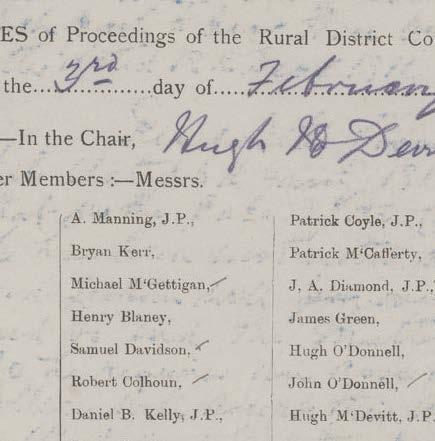 ES of Proceedings of the Rural District Co
the...3rd...day of...February
—In the Chair, Hugh
er Members :—Messrs.
A. Manning, J.P.,
Bryan Kerr,
Michael M'Gettigan,
Henry Blaney,
Samuel Davidson,
Robert Colhoun,
Daniel B. Kelly, J.P.,
Patrick Coyle, J.P.,
Patrick M'Cafferty,
J. A. Diamond, J.P.,
James Green,
Hugh O'Donnell,
John O'Donnell,
Hugh M'Devitt, J.P.